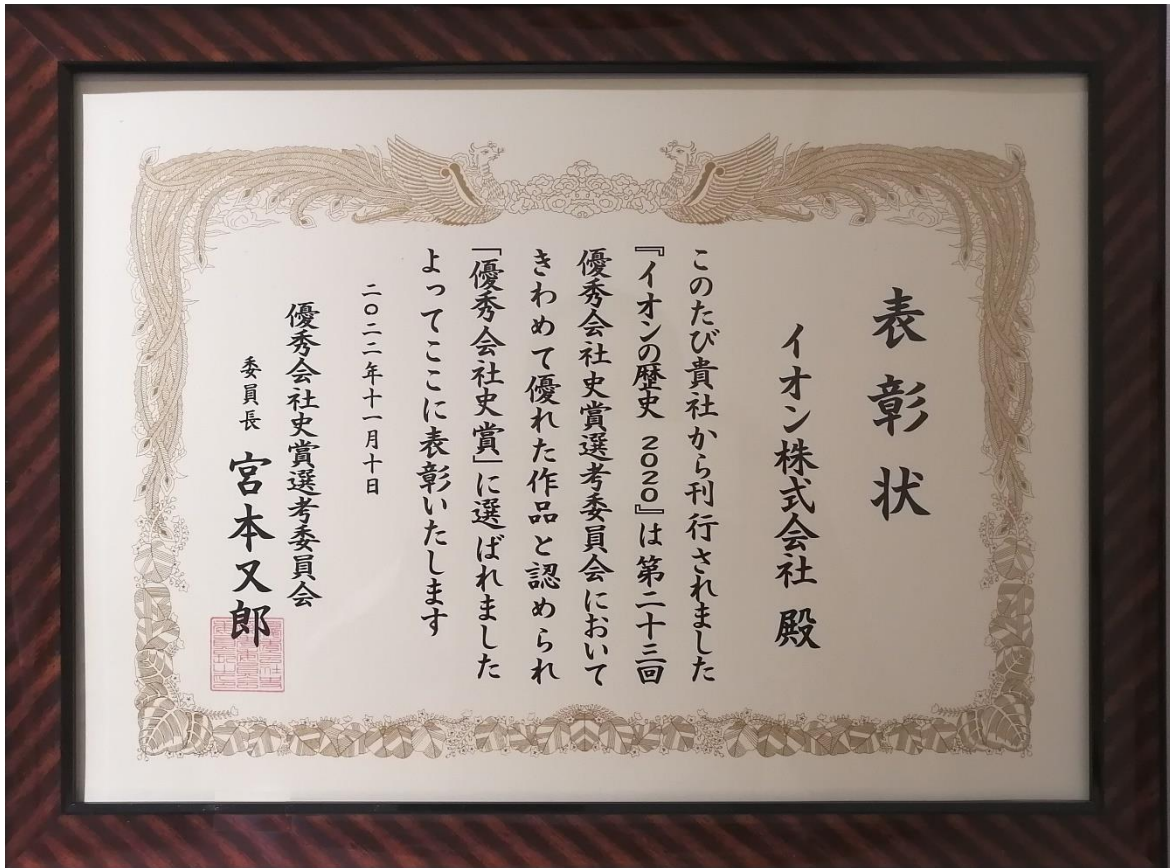 表彰状
イオン株式会社 殿
このたび貴社から刊行されました
『イオンの歴史 2020』は第二十三回
優秀会社史賞選考委員会において
きわめて優れた作品と認められ
「優秀会社史賞」に選ばれました
よってここに表彰いたします
二〇二二年十一月十日
優秀会社史賞選考委員会
委員長 宮本又郎